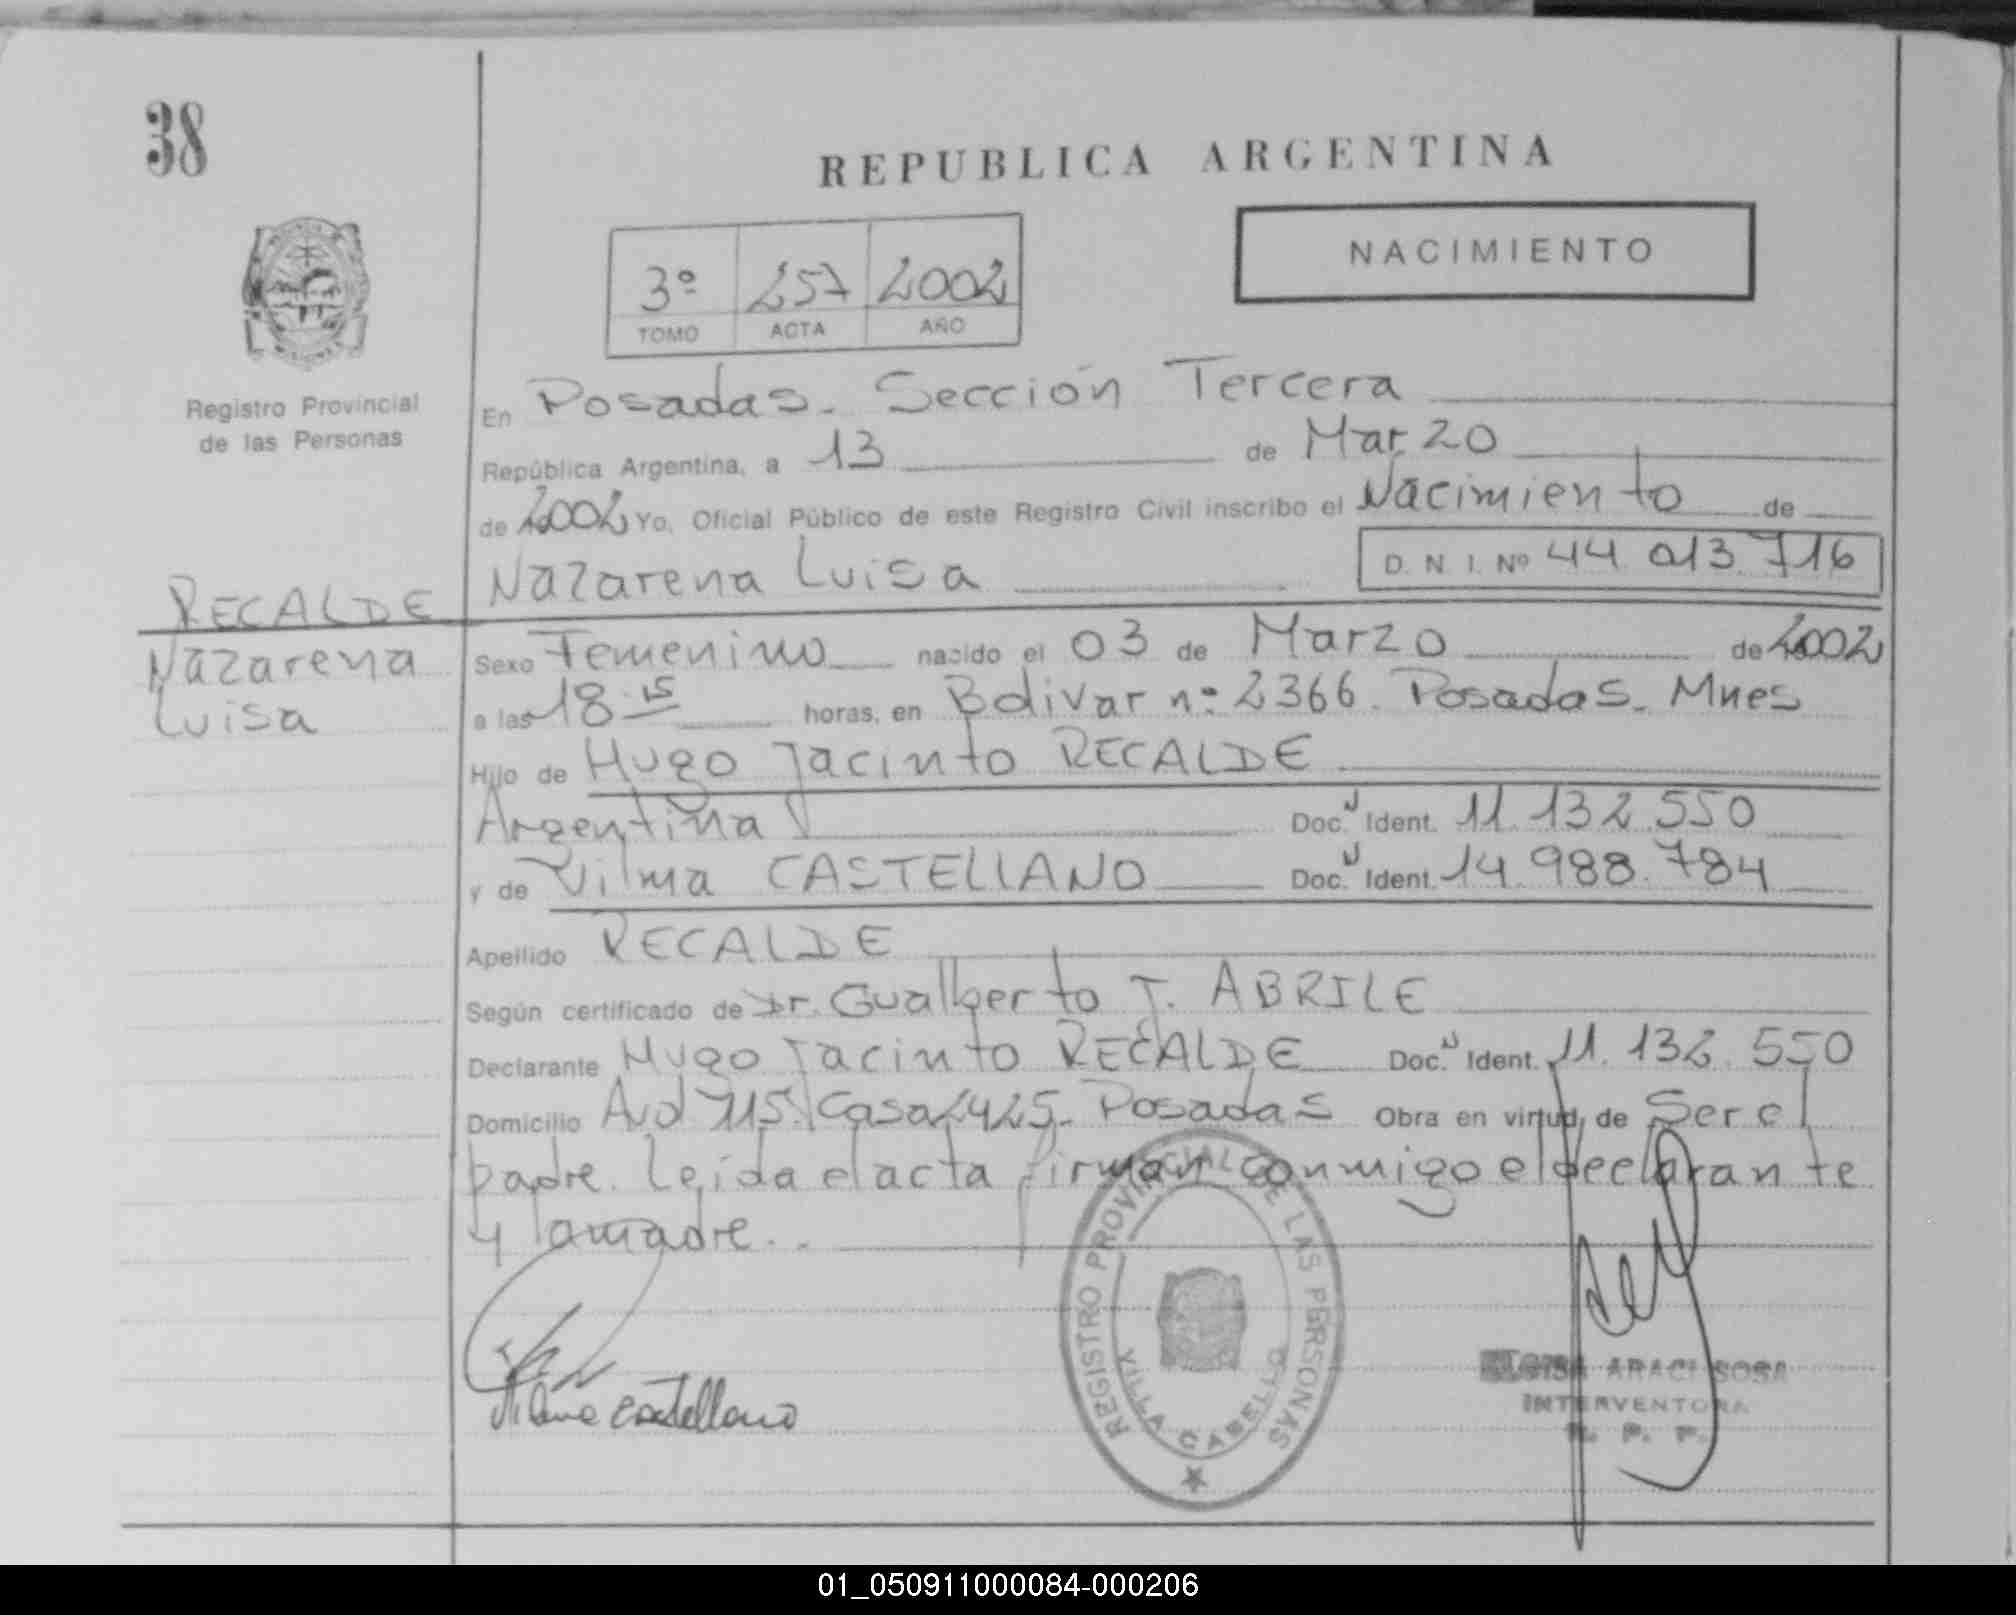 38
REPUBLICA ARGENTINA
NACIMIENTO
3º 257 2002
TOMO ACTA AÑO
Registro Provincial
de las Personas
En Posadas. Sección Tercera
República Argentina, a 13 de Marzo
de 2002 Yo, Oficial Público de este Registro Civil inscribo el Nacimiento de
Nazarena Luisa D. N. I. Nº 44.013.716
RECALDE
Nazarena
Luisa
Sexo Femenino nacido el 03 de Marzo de 2002
a las 18.15 horas, en Bolivar nº 2366. Posadas. Mnes
Hijo de Hugo Jacinto RECALDE
Argentina Doc. Ident. 11.132.550
y de Vilma CASTELLANO Doc. Ident. 14.988.784
Apellido RECALDE
Según certificado de Dr. Gualberto J. ABRILE
Declarante Hugo Jacinto RECALDE Doc. Ident. 11.132.550
Domicilio Avd 115. Casa 2425. Posadas Obra en virtud de Ser el
padre. Leida el acta firman conmigo el declarante
y la madre..
Vilma Castellano
REGISTRO PROVINCIAL DE LAS PERSONAS
VILLA CABELLO
ARACI SOSA
INTERVENTORA
R. P. P.
01_050911000084-000206